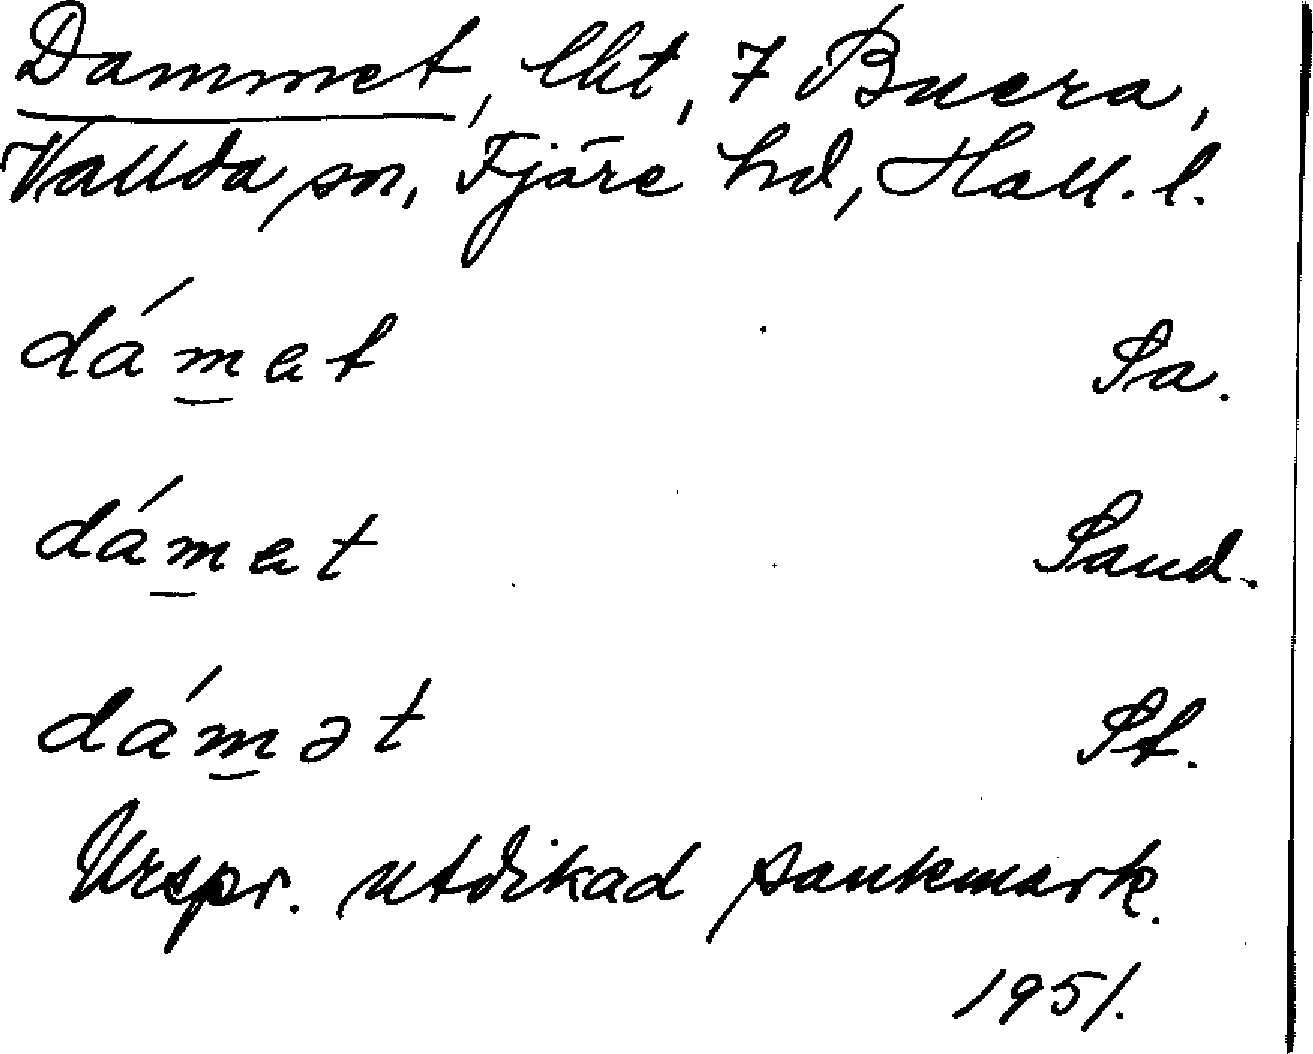 Dammet, lht, 7 Buera,
Vallda sn, Fjäre hd, Hall. l.
dámet Sa.
dámet Sand.
dámət St.
Urspr. utdikad sankmark.
1951.